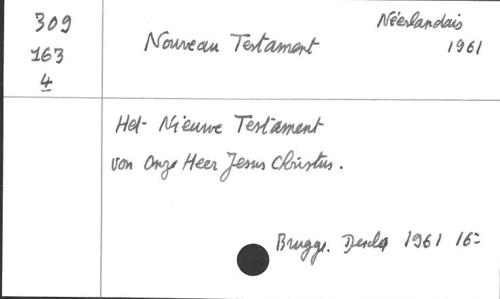 309
163
4
Nouveau Testament
Néerlandais
1961
Het Nieuwe Testament
von Onze Heer Jesus Christus.
Brugge. Desclée 1961 16=